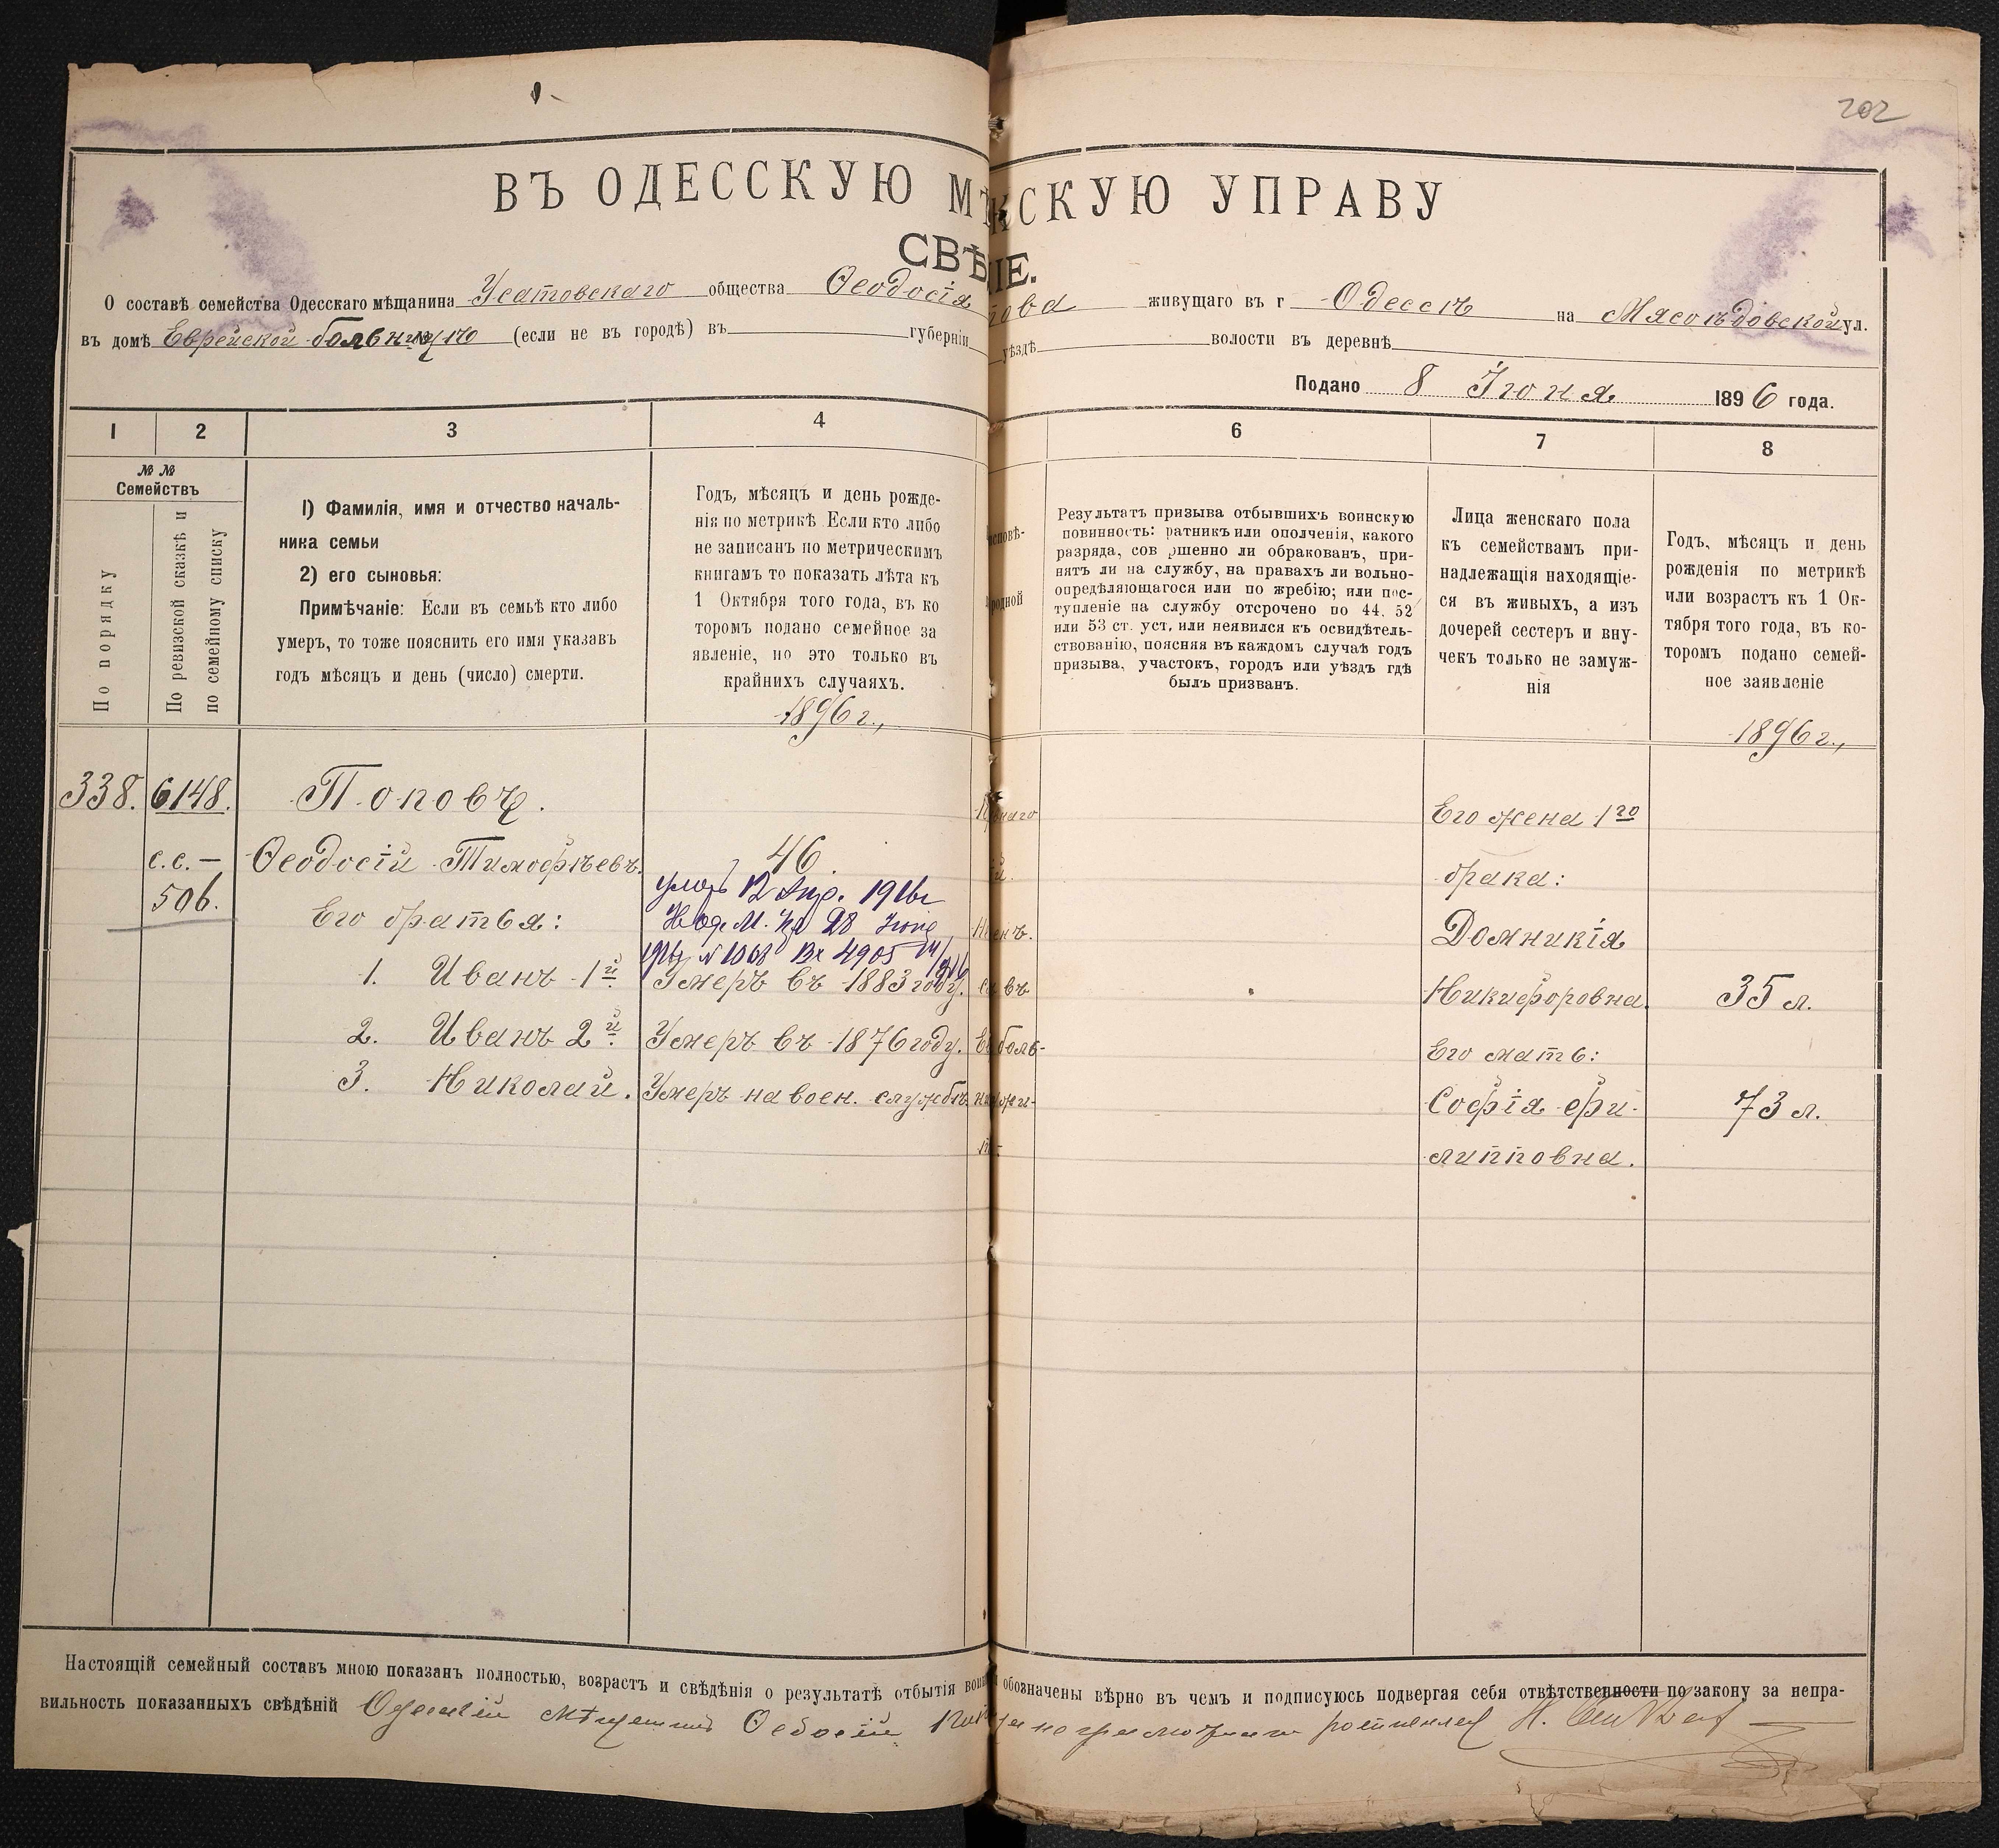 202
ВЪ ОДЕССКУЮ МѢ СКУЮ УПРАВУ
СВѢ НІЕ.
О составѣ семейства Одесскаго мѣщанина Усатовскаго общества Ѳеодосія пова живущаго въ г Одессѣ на Мясоѣдовской ул.
въ домѣ Еврейской больницы (если не въ городѣ) въ губерніи уѣздѣ волости въ деревнѣ
Подано 8 Іюня 1896 года.
1 2 3 4 6 7 8
№ №
Семействъ
По порядку
По ревизской сказкѣ и
по семейному списку
1) Фамилія, имя и отчество началь-
ника семьи
2) его сыновья:
Примѣчаніе: Если въ семьѣ кто либо
умеръ, то тоже пояснить его имя указавъ
годъ мѣсяцъ и день (число) смерти.
Годъ, мѣсяцъ и день рожде-
нія по метрикѣ Если кто либо
не записанъ по метрическимъ
книгамъ то показать лѣта къ
1 Октября того года, въ ко
торомъ подано семейное за
явленіе, но это только въ
крайнихъ случаяхъ.
1896 г.,
исповѣ-
родной
Результатъ призыва отбывшихъ воинскую
повинность: ратникъ или ополченія, какого
разряда, сов ршенно ли обракованъ, при-
нятъ ли на службу, на правахъ ли вольно-
опредѣляющагося или по жребію; или пос-
тупленіе на службу отсрочено по 44. 52
или 53 ст. уст, или неявился къ освидѣтель-
ствованію, поясняя въ каждомъ случаѣ годъ
призыва, участокъ, городъ или уѣздъ гдѣ
былъ призванъ.
Лица женскаго пола
къ семействамъ при-
надлежащія находящіе-
ся въ живыхъ, а изъ
дочерей сестеръ и вну-
чекъ только не замуж-
нія
Годъ, мѣсяцъ и день
рожденія по метрикѣ
или возрастъ къ 1 Ок-
тября того года, въ ко-
торомъ подано семей-
ное заявленіе
1896 г.,
338. 6148. Поповъ.
с.с.— Ѳеодосій Тимофѣевъ. 46.
506.
умеръ 12 Апр. 1916 г
28 Іюня
1916 г № 1068 Вх 4905
Его братья:
1. Иванъ 1й Умеръ въ 1883 году.
2. Иванъ 2й. Умеръ въ 1876 году.
3. Николай. Умеръ на воен. службѣ
Его жена 1го
брака:
Домникія
Никифоровна. 35 л.
Его мать:
Софія Фи-
липповна. 73 л.
Настоящій семейный составъ мною показанъ полностью, возрастъ и свѣдѣнія о результатѣ отбытія воин обозначены вѣрно въ чемъ и подписуюсь подвергая себя отвѣтственности по закону за непра-
вильность показанныхъ свѣдѣній Одесскій мѣщанинъ Ѳедосій